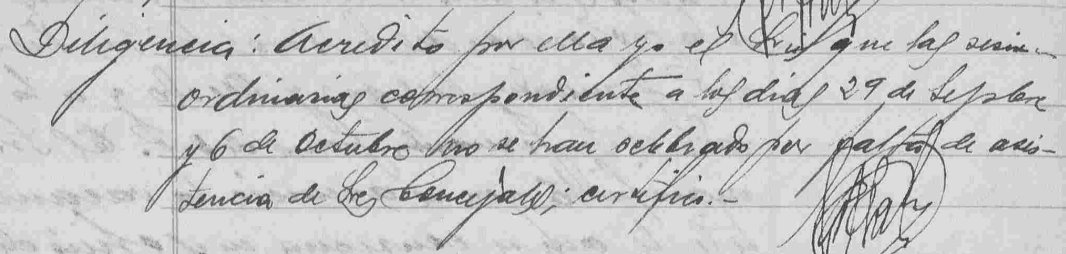 Diligencia: Acredito por ella yo el Srio que las sesio-
ordinarias correspondiente a los dias 29 de Sepbre
y 6 de Octubre no se han celebrado por falta de asis-
tencia de Sres Concejales; certifico.-